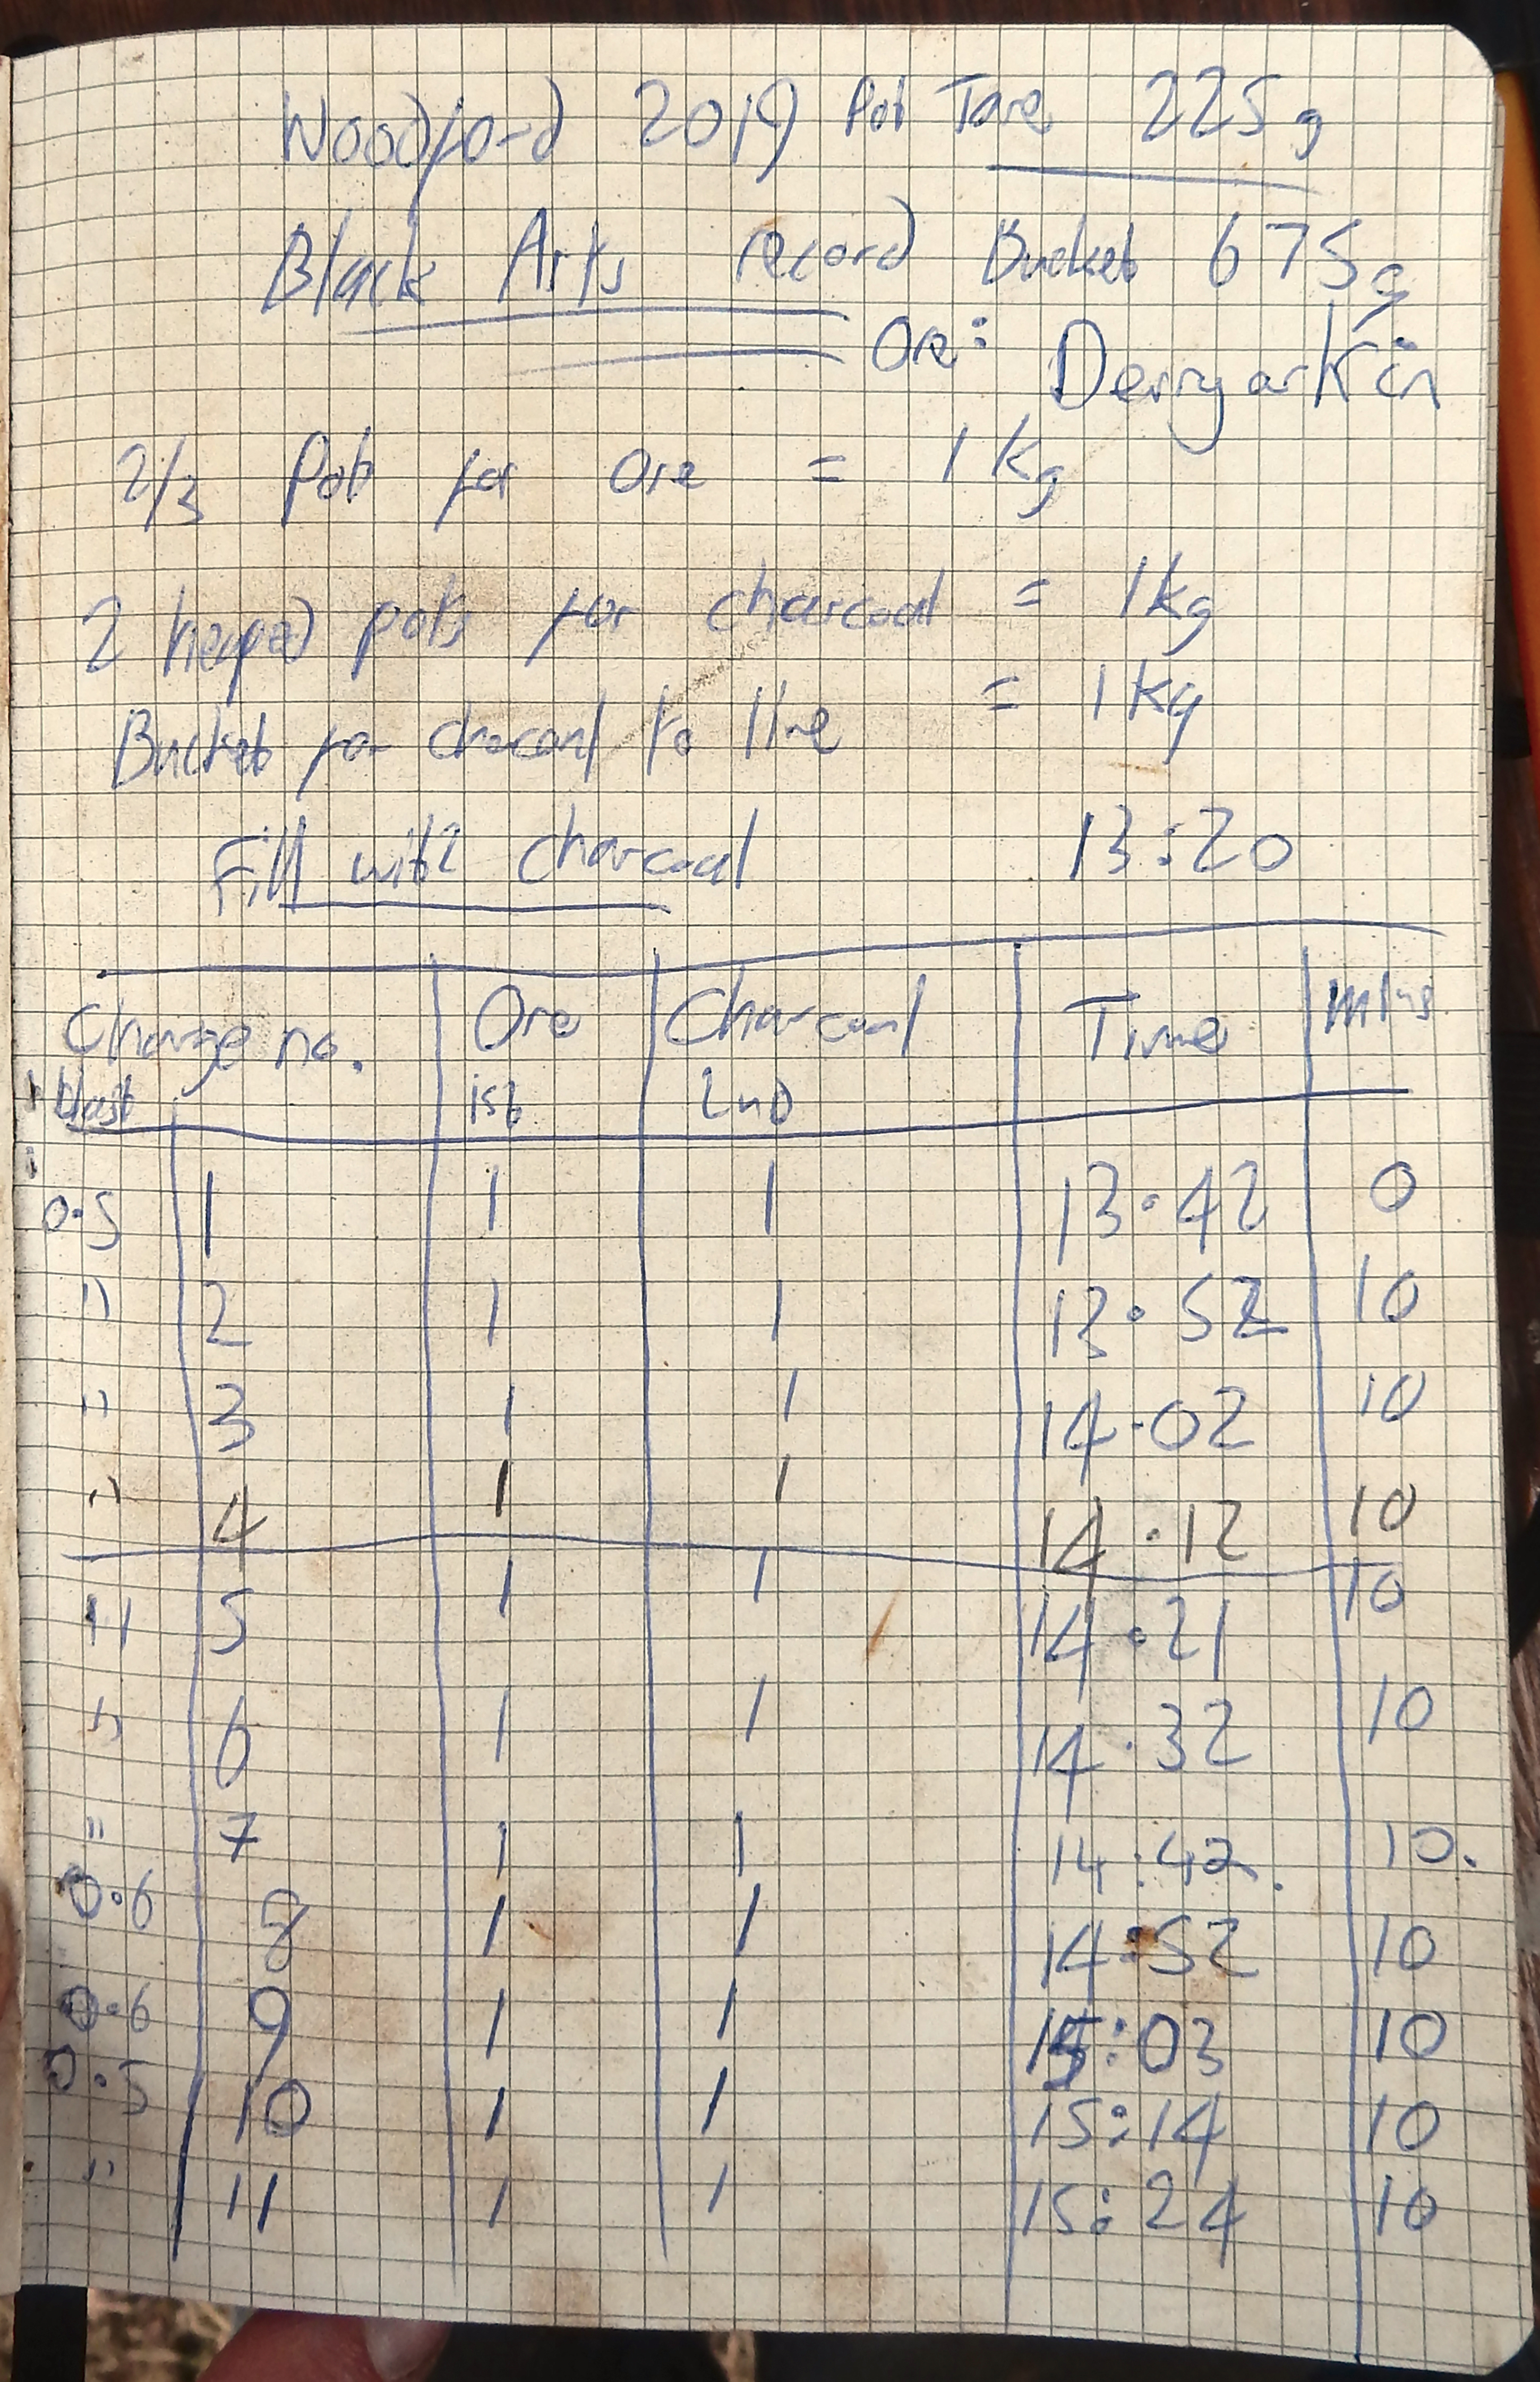 Woodford 2019 Pot Tare 225g
Black Arts record Bucket 675g
Ore: Derryarkin
2/3 Pot for ore = 1Kg
2 heaped pots for charcoal = 1kg
Bucket for charcoal to line = 1Kg
Fill with charcoal 13:20
Charge no. Ore Charcoal Time mins.
blast 1st 2nd
0.5 1 1 1 13.42 0
" 2 1 1 13.52 10
" 3 1 1 14.02 10
" 4 1 1 14.12 10
" 5 1 1 14.21 10
" 6 1 1 14.32 10
" 7 1 1 14:42. 10.
0.6 8 1 1 14:52 10
0.6 9 1 1 15:03 10
0.5 10 1 1 15:14 10
" 11 1 1 15:24 10